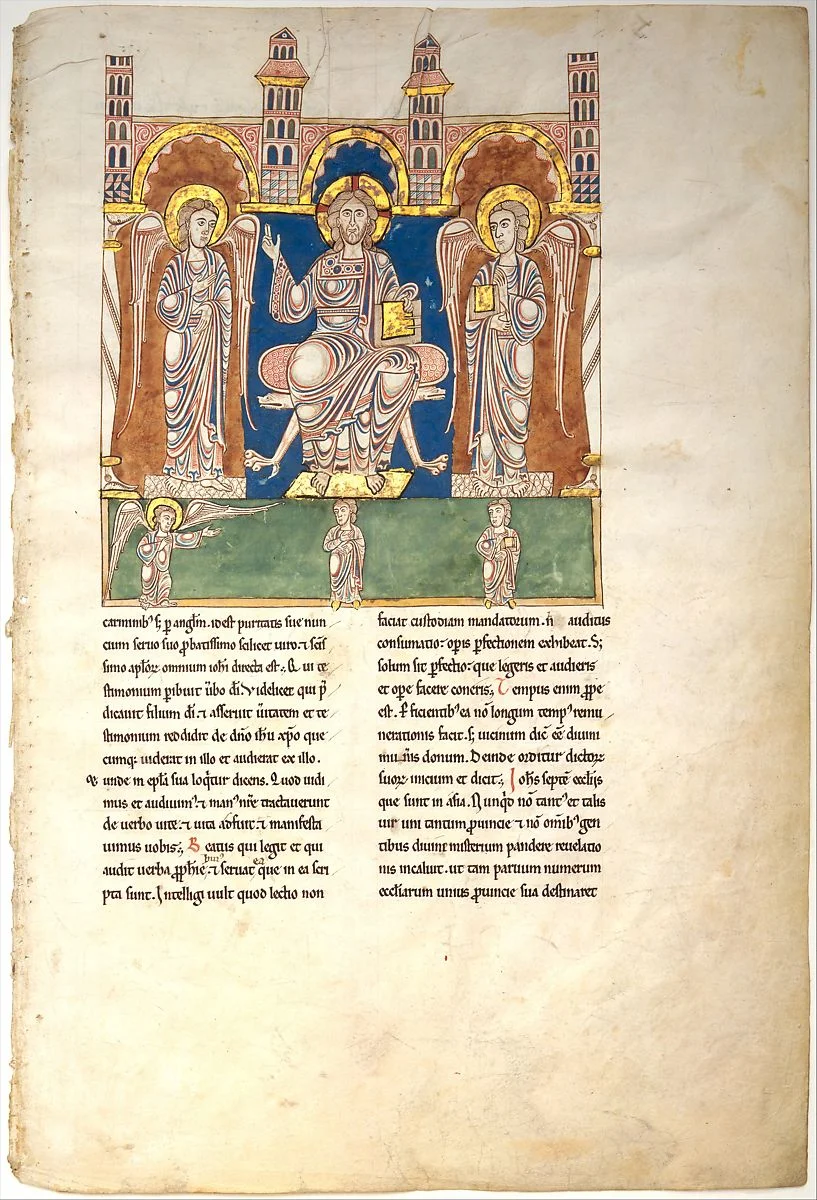 carminib⁹ s; p̱ angl̄m. id est puritatis sue nun
cium seruo suo ꝓbatissimo scilicet uiro. ⁊ sc̄is
simo apl̄oꝝ omnium ioh̄i directa est; Qui te
stimonium p̱ibuit ūbo dī. Videlicet qui p̄
dicauit filium dī. ⁊ asseruit ūitatem et te
stimonium reddidit de dn̄o ih̄u xp̄o que
cumq; uiderat in illo et audierat ex illo.
unde in epl̄a sua loq̄tur dicens. Quod uidi
mus et audiuim⁹. ⁊ man⁹ nr̄e tractauerunt
de uerbo uite. ⁊ uita adfuit. ⁊ manifesta
uimus uobis; Beatus qui legit et qui
audit uerba ꝓph̄ie hui⁹ ⁊ seruat ea que in ea scri
pta sunt. Intelligi uult quod lectio non
faciat custodiam mandatorum. n̄ auditus
consumatio. opis p̱fectionem exhibeat. S;
solum sit p̱fectio. que legeris et audieris
et ope facere coneris; Tempus enim ꝓpe
est. P̱ficientib⁹ ea nō longum temp⁹ remu
nerationis facit. s; uicinum dic̄ eē diuini
muн̄is donum. Deinde orditur dictoꝝ
suoꝝ inicium et dicit; Ioh̄s septē eccl̄iis
que sunt in asia. Nunq̇d nō tant⁹ et talis
uir uni tantum ꝓuincie ⁊ nō om̄ib⁹ gen
tibus diuini misterium pandere reuelatio
nis incaluit. ut tam paruum numerum
eccl̄iarum unius ꝓuincie sua destinaret